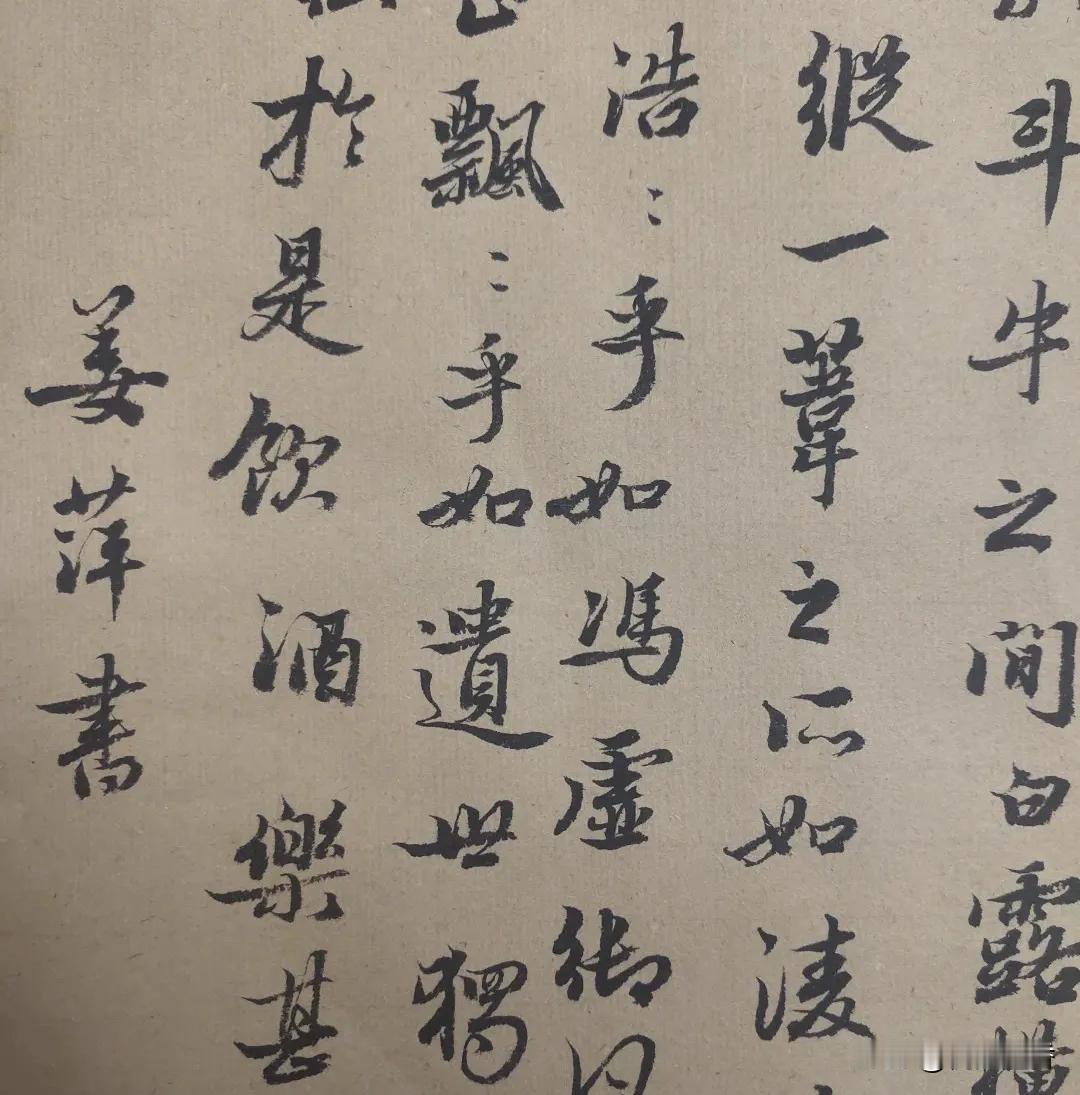 斗牛之间白露横
縱一葦之所如凌
浩〻乎如馮虛御
飄〻乎如遺世獨
於是飲酒樂甚
姜萍書